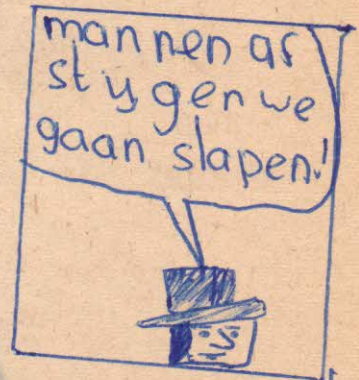 mannen af
stygen we
gaan slapen!